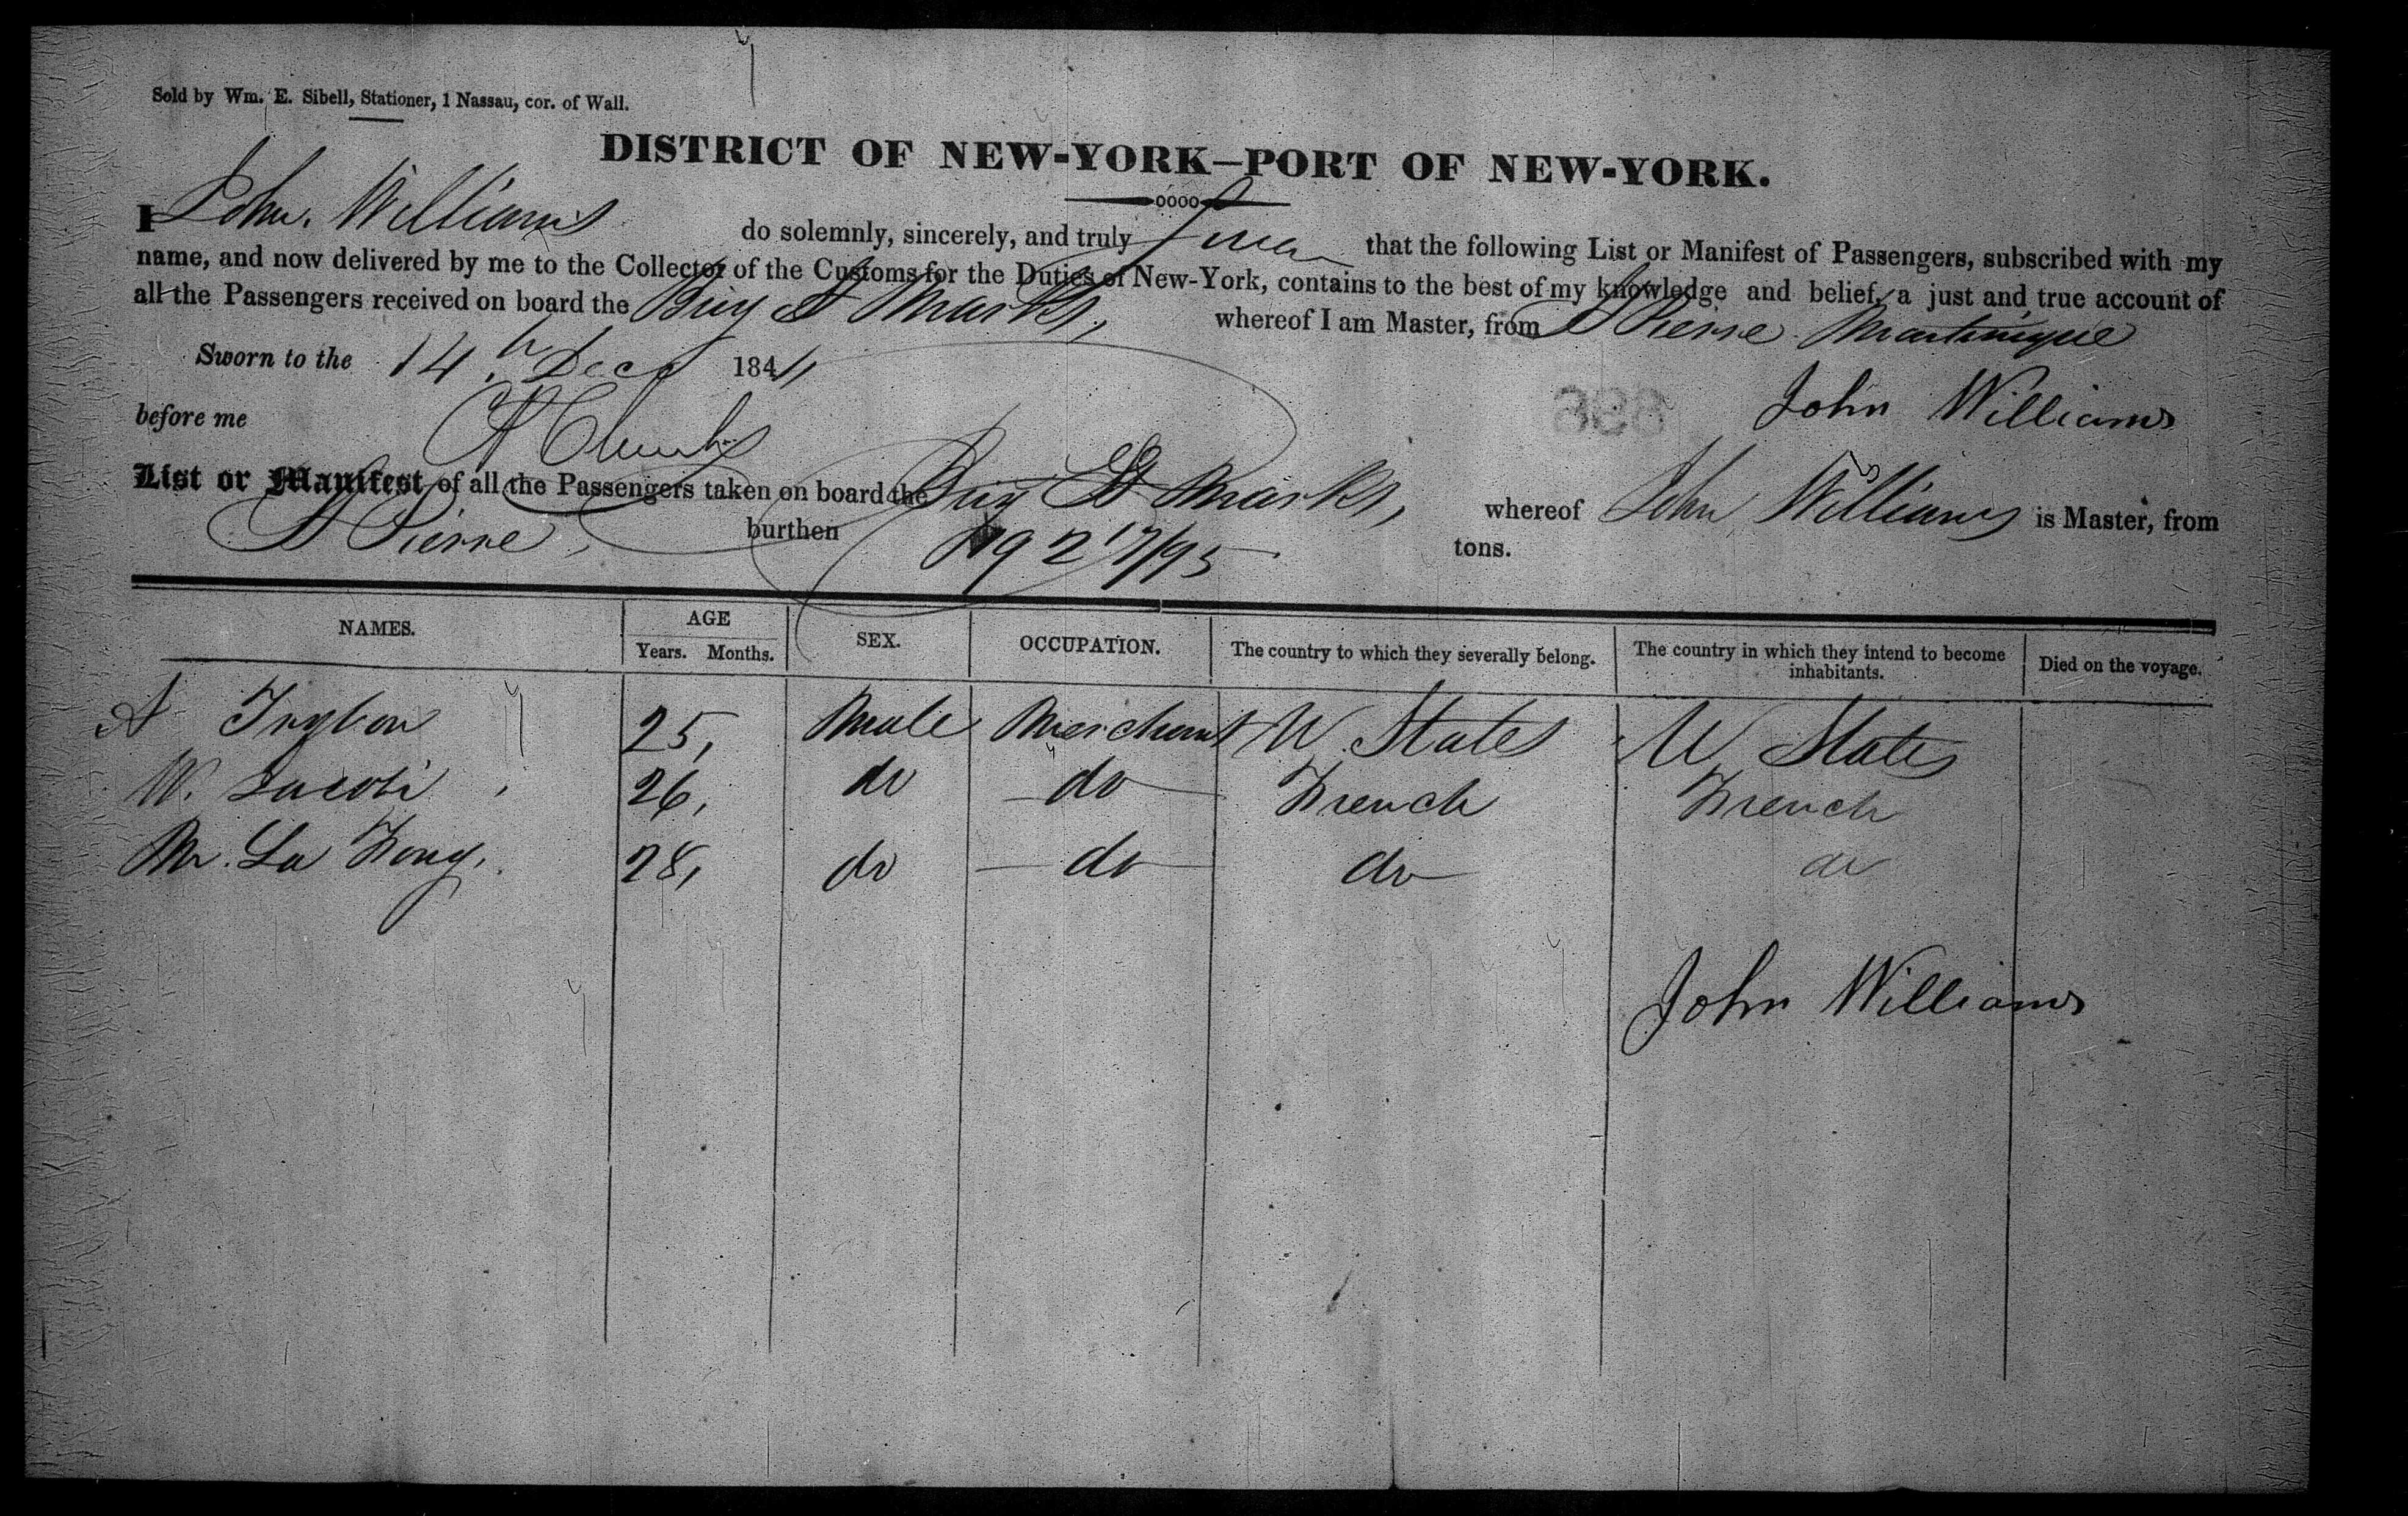 Sold by Wm. E. Sibell, Stationer, 1 Nassau, cor. of Wall.
DISTRICT OF NEW-YORK—PORT OF NEW-YORK.
I John Williams do solemnly, sincerely, and truly swear that the following List or Manifest of Passengers, subscribed with my
name, and now delivered by me to the Collector of the Customs for the Duties of New-York, contains to the best of my knowledge and belief, a just and true account of
all the Passengers received on board the Brig St Marks, whereof I am Master, from St Pierre Martinique
Sworn to the 14th Decr 1841
John Williams
before me
List or Manifest of all the Passengers taken on board the Brig St Marks, whereof John Williams is Master, from
St Pierre burthen 192 17/95 tons.
NAMES. AGE Years. Months. SEX. OCCUPATION. The country to which they severally belong. The country in which they intend to become inhabitants. Died on the voyage.
A 25, Male Merchant U States U States
W. Jacobi 26, do do French French
M. La Fong. 28, do do do do
John Williams